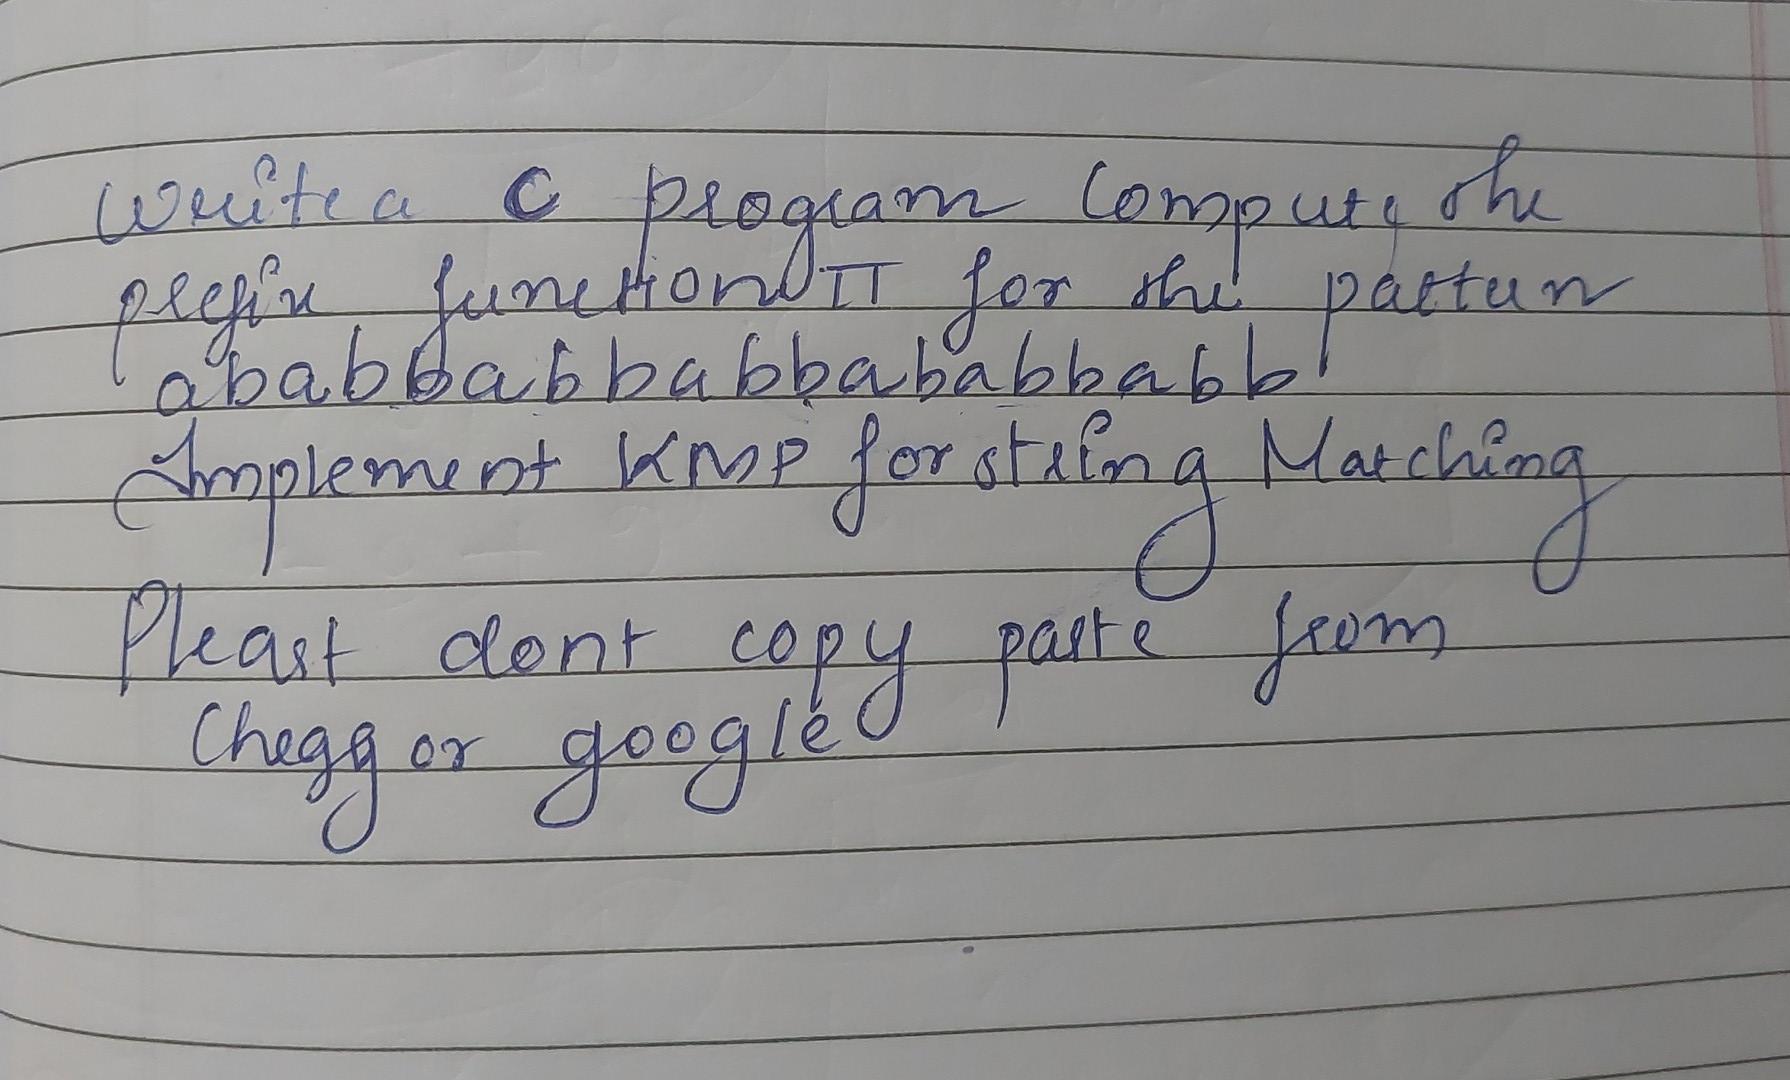 Write a C program Compute the
prefix function π for the pattern
ababbabbabbababbabb
Implement KMP for string Matching
Please dont copy paste from
Chegg or google